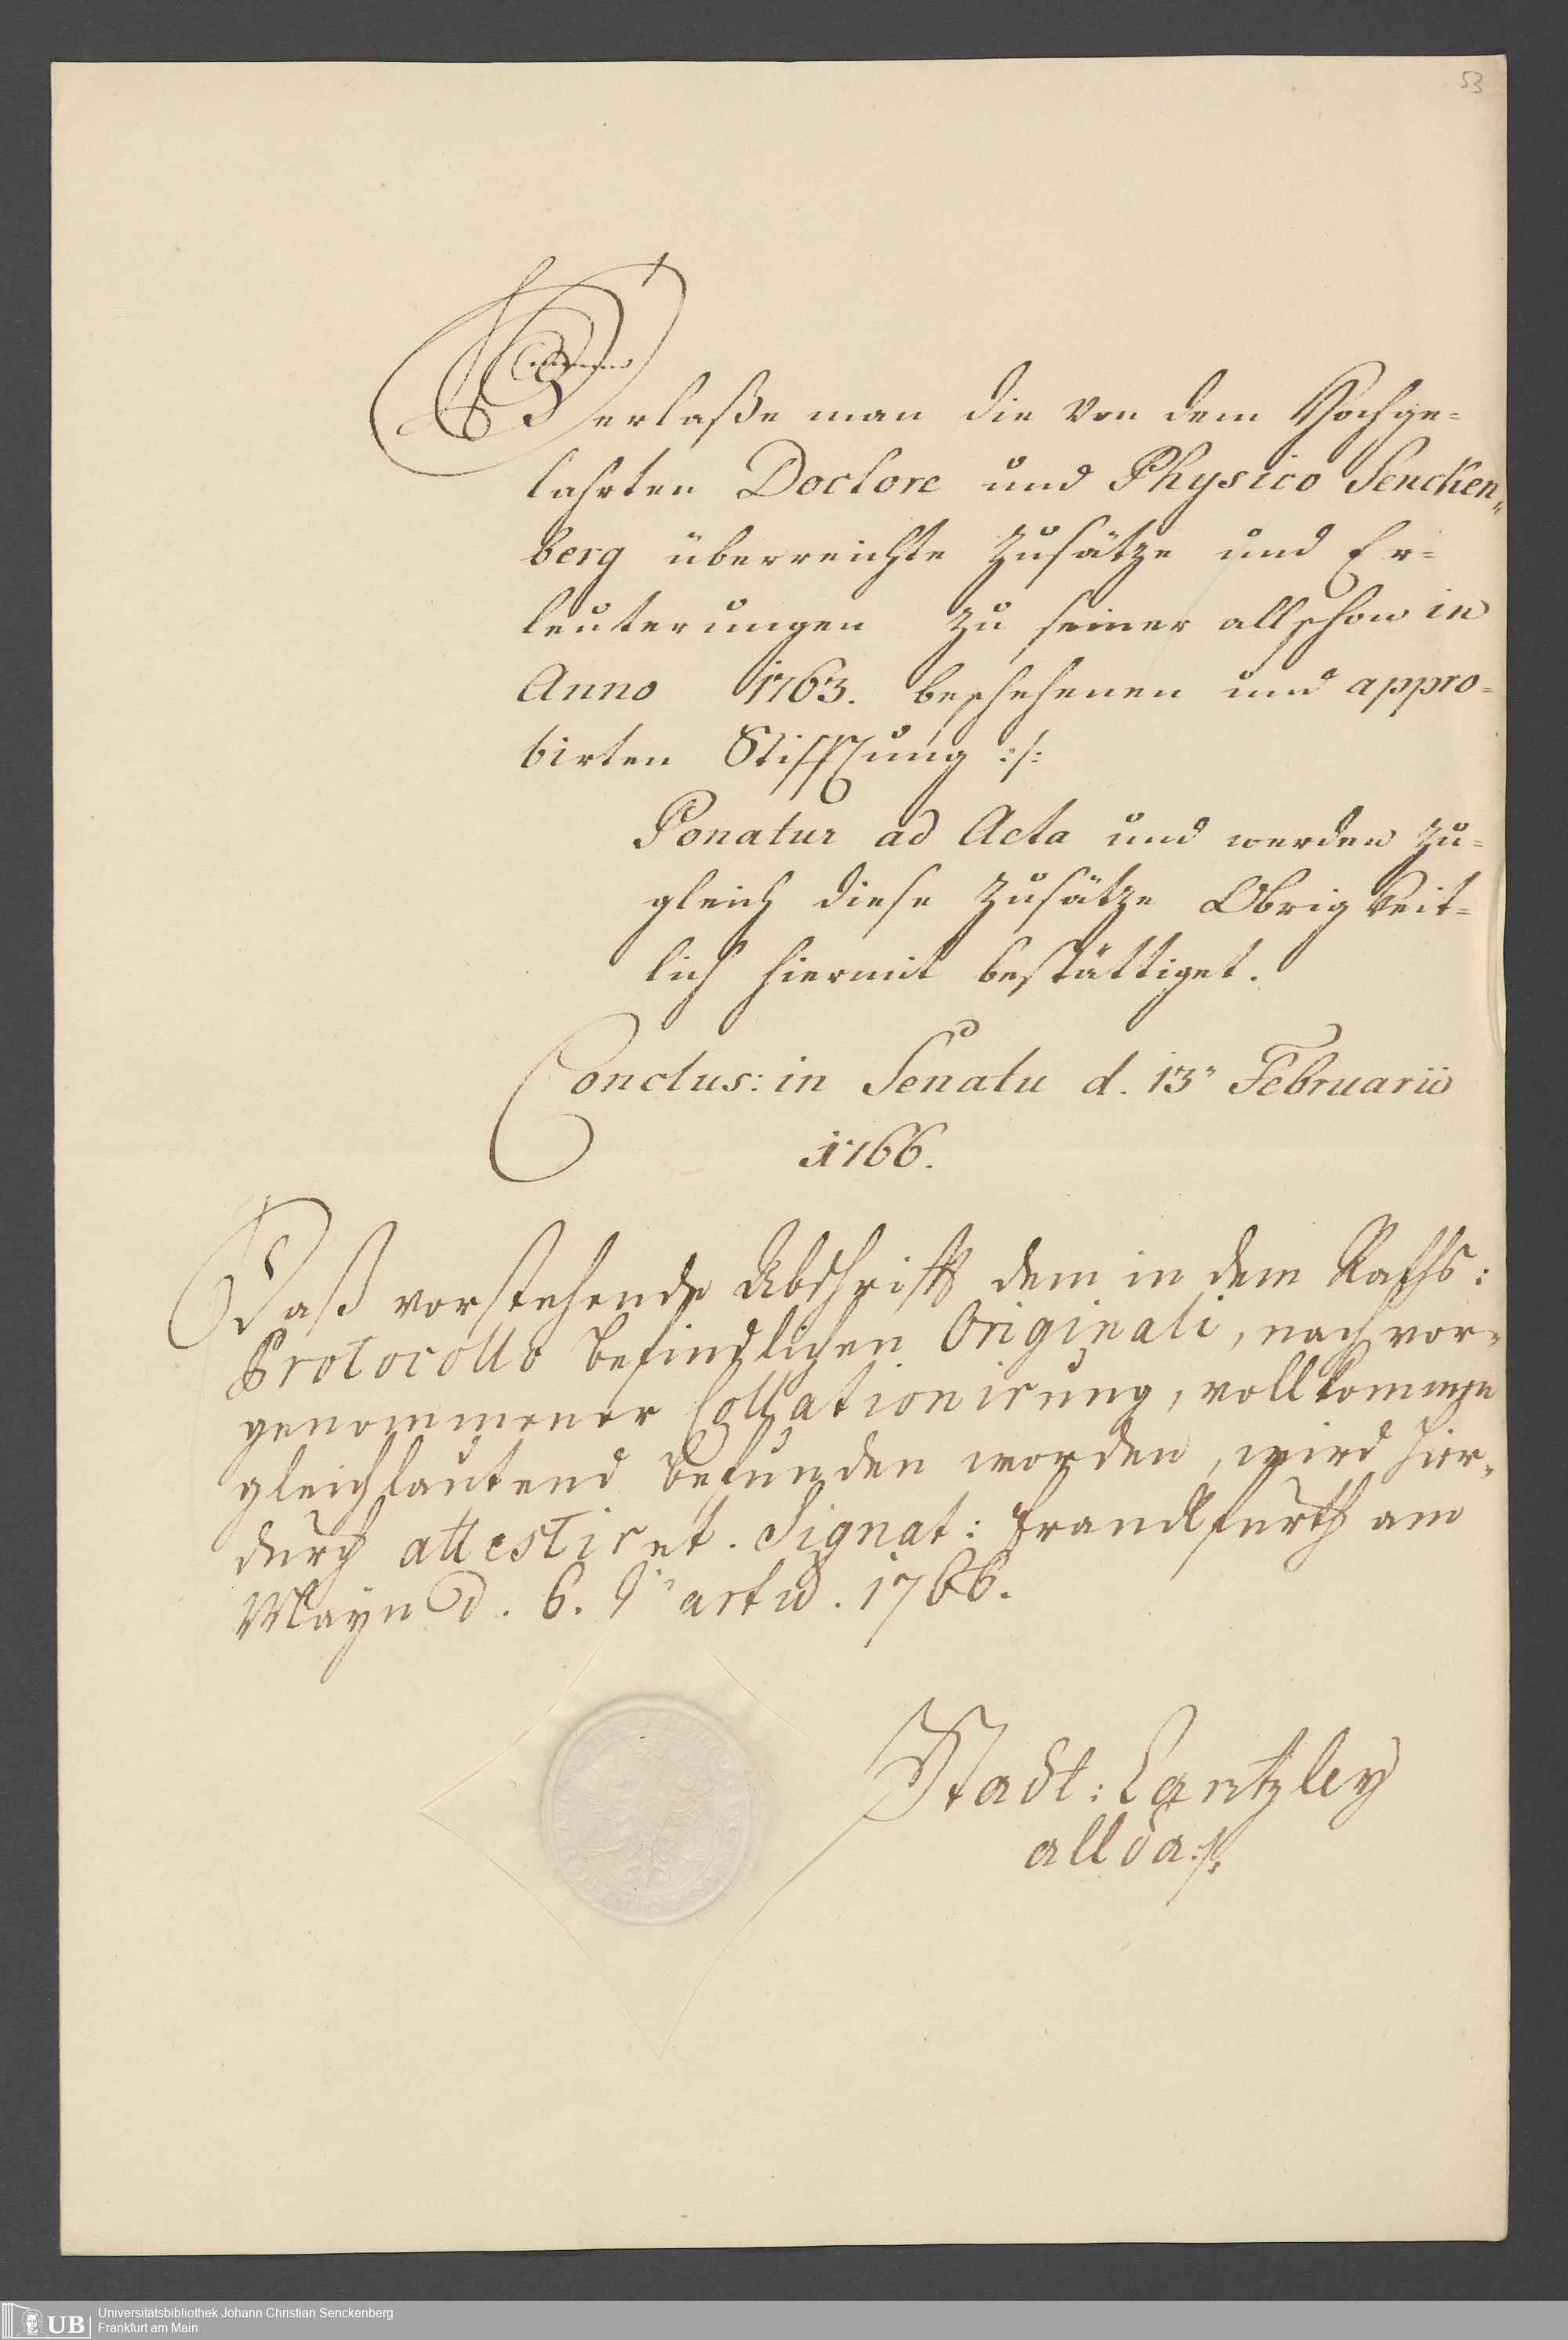 53
Verlaße man die von dem Hochge-
lahrten Doctore und Physico Sencken-
berg überreichte Zusätze und Er-
leuterungen zu seiner allschon in
Anno 1763. beschehenen und appro-
birten Stifftung :/:
Ponatur ad Acta und werden zu-
gleich diese Zusätze Obrigkeit-
lich hiermit bestättiget.
Conclus: in Senatu d. 13n Februarii
1766.
Daß vorstehende Abschrifft dem in dem Raths:
Protocollo befindlichen Originali, nach vor-
genommener Collationirung, vollkommen
gleichlautend befunden worden, wird hier-
durch attestiret. Signat: Franckfurth am
Mayn d. 6. Martii. 1766.
Stadt: Cantzley
allda :/:
UB
Universitätsbibliothek Johann Christian Senckenberg
Frankfurt am Main